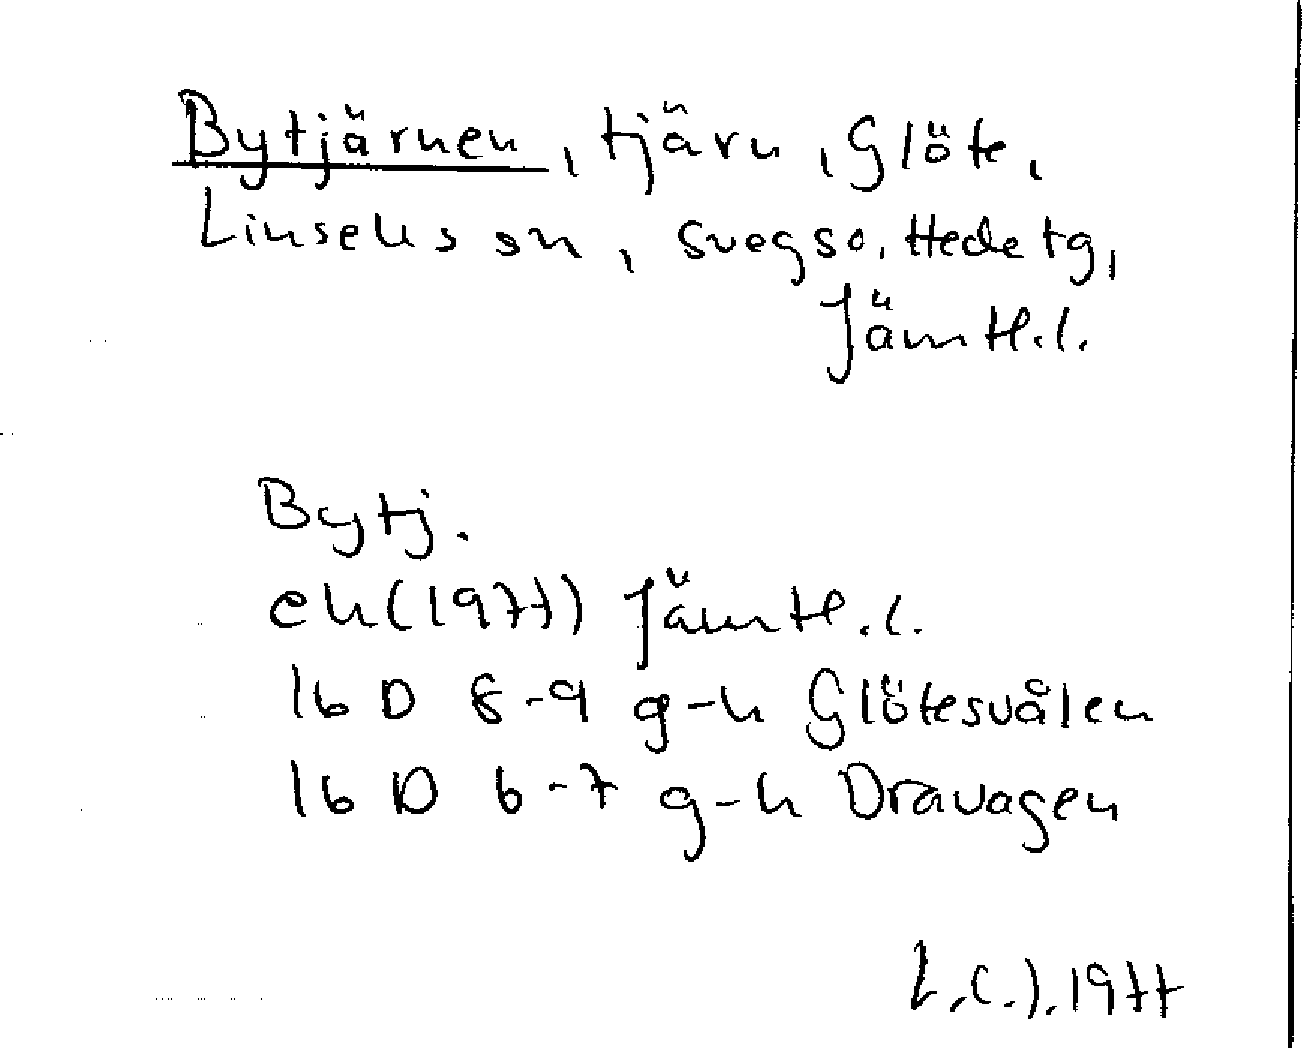 Bytjärnen, tjärn, Glöte,
Linsells sn, Svegs o. Hede tg,
Jämtl. l.
Bytj.
ek (1977) Jämtl. l.
16 D 8-9 g-h Glötesvålen
16 D 6-7 g-h Dravagen
L.C.J. 1977